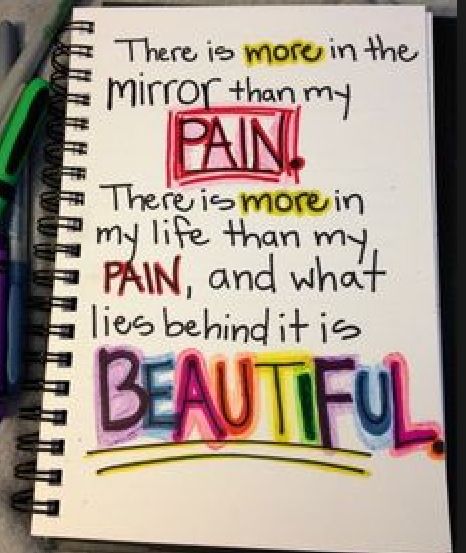 There is more in the
mirror than my
PAIN.
There is more in
my life than my
PAIN, and what
lies behind it is
BEAUTIFUL.